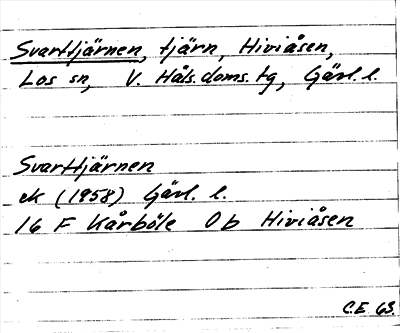 Svarttjärnen, tjärn, Hiviåsen,
Los sn, V. Häls.doms.tg, Gävl.l.
Svarttjärnen
ek (1958) Gävl. l.
16 F Kårböle 0b Hiviåsen
C.E. 63.